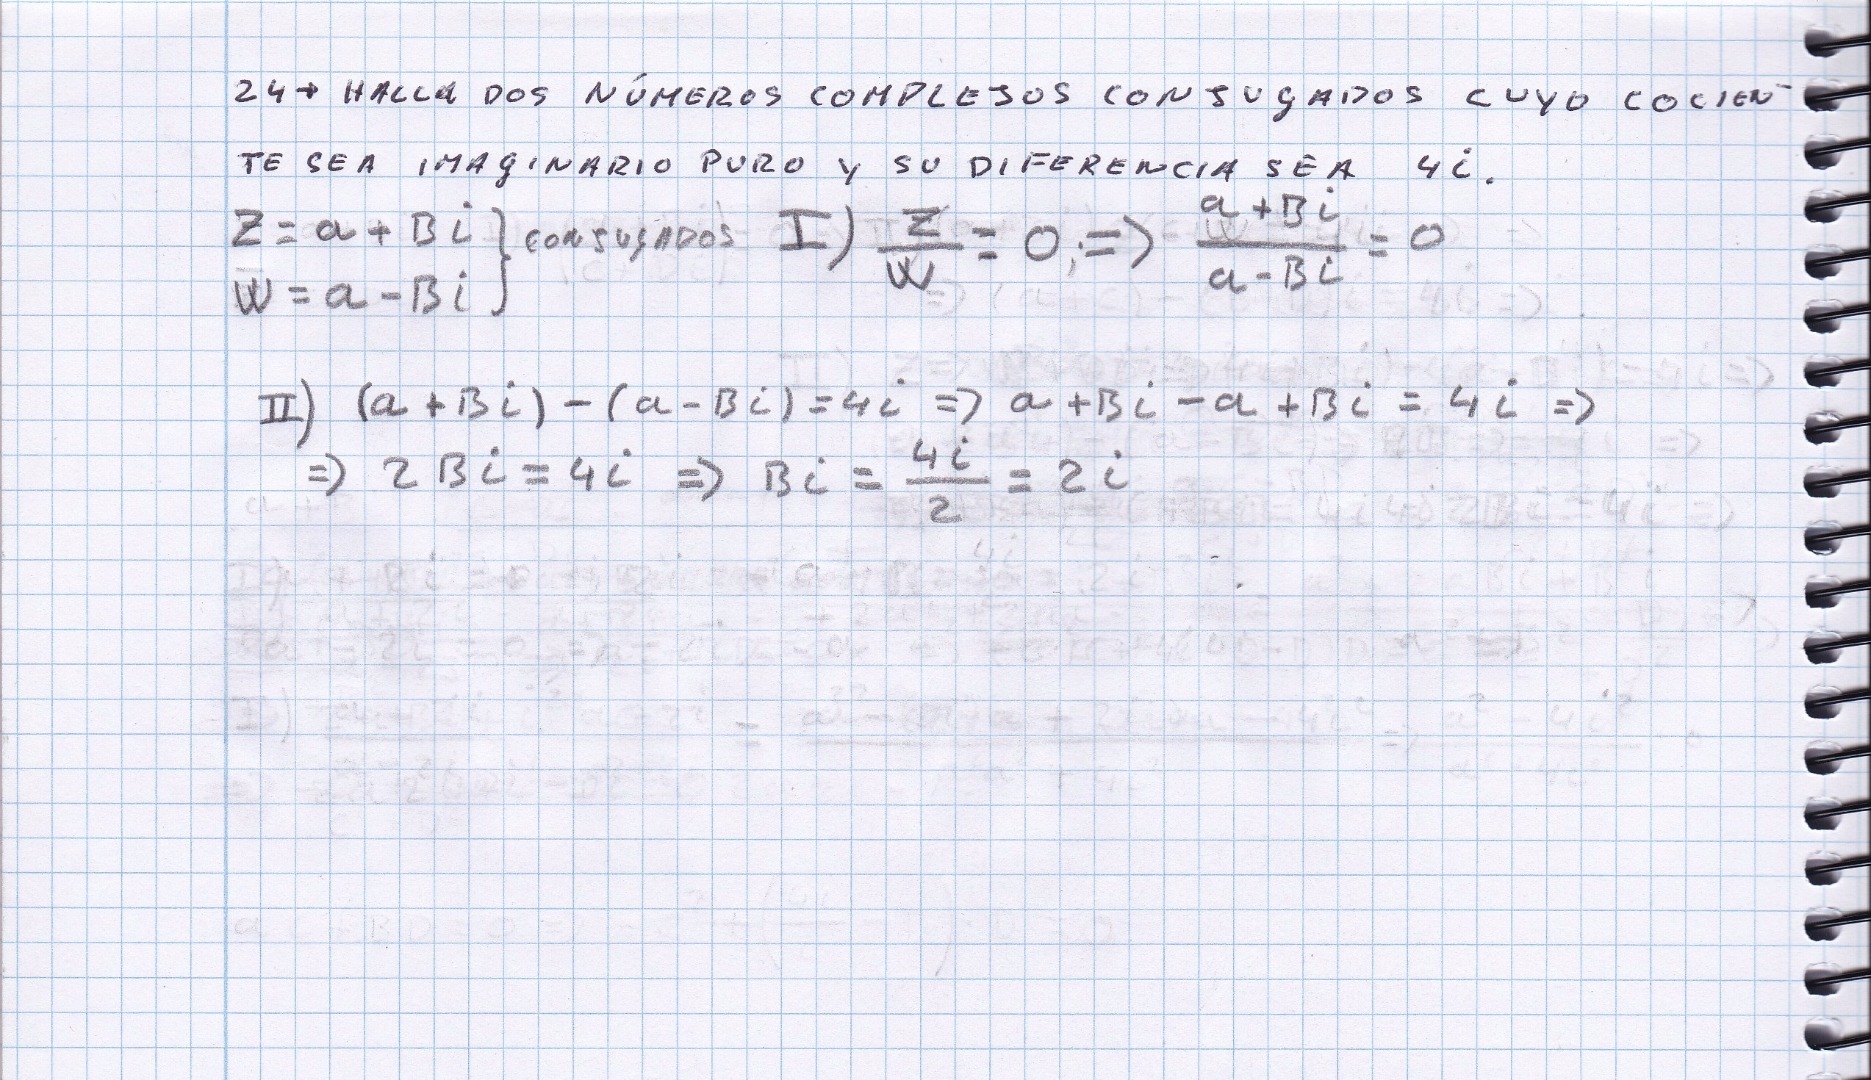 24→ HALLA DOS NÚMEROS COMPLEJOS CONJUGADOS CUYO COCIEN-
TE SEA IMAGINARIO PURO Y SU DIFERENCIA SEA 4i.
Z = a + Bi } CONJUGADOS I) Z/W = 0; => (a + Bi)/(a - Bi) = 0
W = a - Bi
II) (a + Bi) - (a - Bi) = 4i => a + Bi - a + Bi = 4i =>
=> 2Bi = 4i => Bi = 4i/2 = 2i